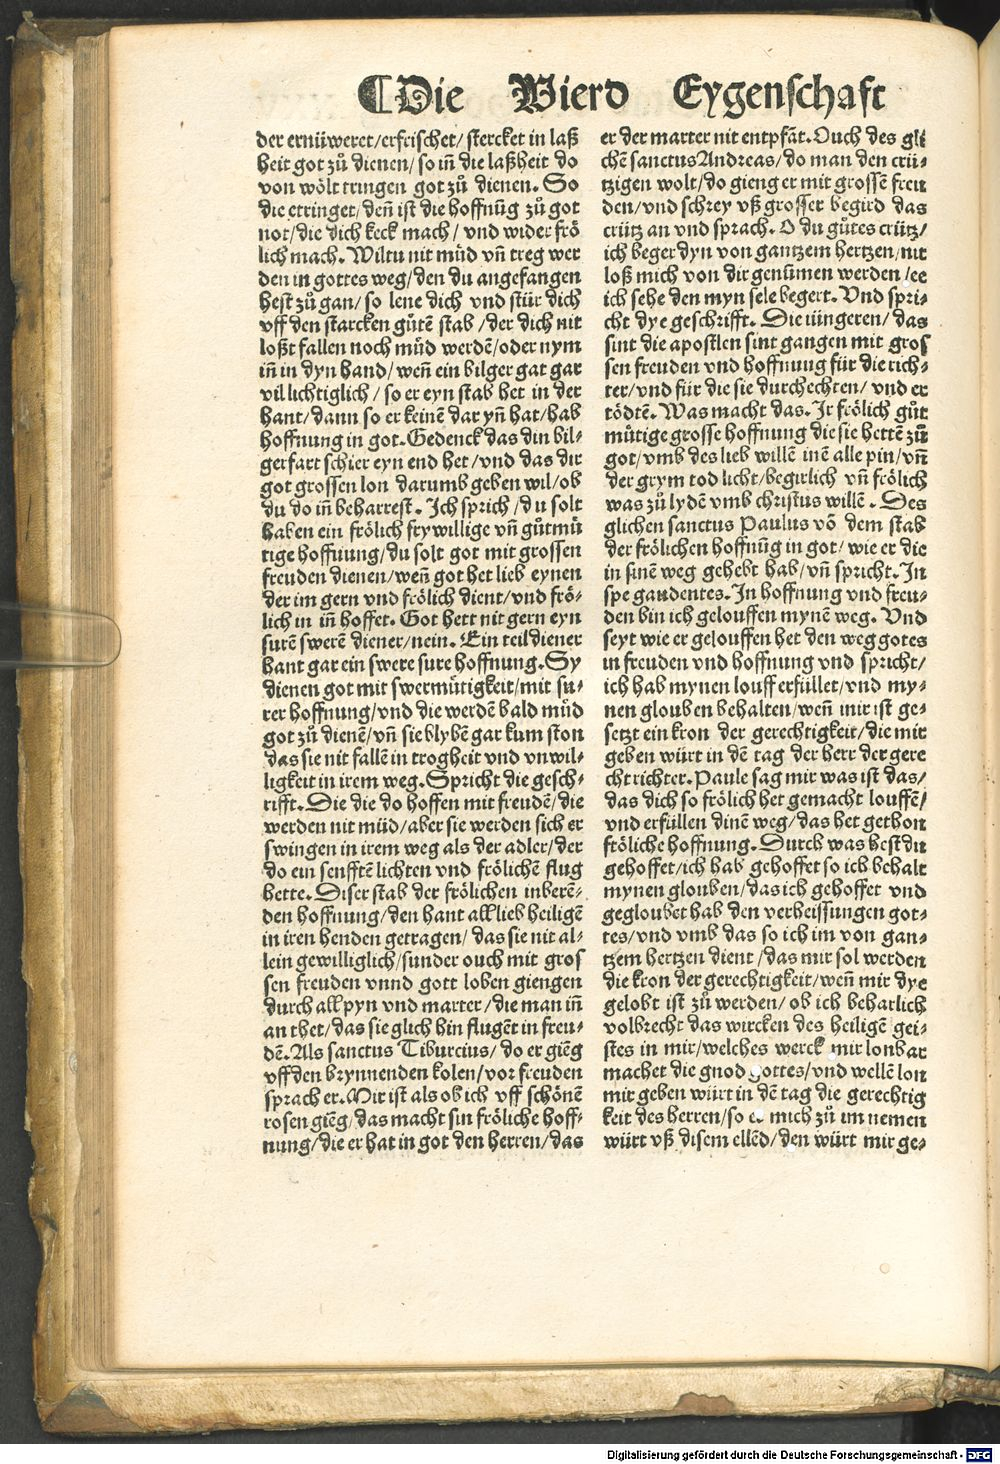 ¶Die Vierd Eygenschaft
der ernüweret/erfrischet/ stercket in laß
heit got zů dienen/ so iñ die laßheit do
von wölt tringen got zů dienen. So
die etringet/deñ ist die hoffnũg zů got
not/die dich keck mach/ vnd wider frö
lich mach. Wiltu nit müd vñ treg wer
den in gottes weg/den du angefangen
hest zů gan/ so lene dich vnd stür dich
vff den starcken gůtẽ stab /der dich nit
loßt fallen noch müd werdẽ/oder nym
iñ in dyn hand/ weñ ein bilger gat gar
vil lichtiglich/ so er eyn stab het in der
hant/dann so er keinẽ dar yñ hat/hab
hoffnung in got. Gedenck das din bil⸗
gerfart schier eyn end het/vnd das dir
got grossen lon darumb geben wil/ob
du do iñ beharrest. Ich sprich/du solt
haben ein frölich frywillige vñ gůtmü
tige hoffuung/du solt got mit grossen
freuden dienen/weñ got het lieb eynen
der im gern vnd frölich dient/vnd frö⸗
lich in iñ hoffet. Got hett nit gern eyn
surẽ swerẽ diener/nein. Ein teil diener
hant gar ein swere sure hoffnung. Sy
dienen got mit swermütigkeit/mit su⸗
rer hoffnung/vnd die werdẽ bald müd
got zů dienẽ/vñ sie blybẽ gar kum ston
das sie nit fallẽ in trogheit vnd vnwil⸗
ligkeit in irem weg. Spricht die gesch⸗
rifft. Die die do hoffen mit freudẽ/die
werden nit müd/aber sie werden sich er
swingen in irem weg als der adler/der
do ein senfftẽ lichten vnd frölichẽ flug
hette. Diser stab der frölichen inberẽ⸗
den hoffnung/den hant all lieb heiligẽ
in iren henden getragen/ das sie nit al⸗
lein gewilliglich/sunder ouch mit gros
sen freuden vnnd gott loben giengen
durch all pyn vnd marter/die man iñ
an thet/das sie glich hin flugẽt in freu⸗
dẽ. Als sanctus Tiburcius/ do er giẽg
vff den brynnenden kolen/vor freuden
sprach er. Mir ist als ob ich vff schönẽ
rosen giẽg/das macht sin fröliche hoff⸗
nung/die er hat in got den herren/das
er der marter nit entpfãt. Ouch des gli
chẽ sanctus Andreas/do man den crü⸗
tzigen wolt/do gieng er mit grossẽ freu
den/vnd schrey vß grosser begird das
crütz an vnd sprach. O du gůtes crütz/
ich beger dyn von gantzem hertzen/nit
loß mich von dir genũmen werden/ee
ich sehe den myn sele begert. Vnd spri⸗
cht dye geschrifft. Die iüngeren/ das
sint die apostlen sint gangen mit gros
sen freuden vnd hoffnung für die rich⸗
ter/vnd für die sie durchechten/ vnd er
tödtẽ. Was macht das. Ir frölich gůt
mütige grosse hoffnung die sie hettẽ zů
got/vmb des lieb willẽ inẽ alle pin/vñ
der grym tod licht/begirlich vñ frölich
was zů lydẽ vmb christus willẽ. Des
glichen sanctus Paulus võ dem stab
der frölichen hoffnũg in got/ wie er die
in sinẽ weg gehebt hab/vñ spricht. In
spe gaudentes. In hoffnung vnd freu⸗
den bin ich gelouffen mynẽ weg. Vnd
seyt wie er gelouffen het den weg gotes
in freuden vnd hoffnung vnd spricht/
ich hab mynen louff erfüllet/vnd my⸗
nen glouben behalten/weñ mir ist ge⸗
setzt ein kron der gerechtigkeit/die mir
geben würt in dẽ tag der herr der gere
cht richter. Paule sag mir was ist das/
das dich so frölich het gemacht louffẽ/
vnd erfüllen dinẽ weg/das het gethon
fröliche hoffnung. Durch was hest du
gehoffet/ich hab gehoffet so ich behalt
mynen glouben/das ich gehoffet vnd
gegloubet hab den verheissungen got⸗
tes/vnd vmb das so ich im von gan⸗
tzem hertzen dient/das mir sol werden
die kron der gerechtigkeit/weñ mir dye
gelobt ist zů werden/ ob ich beharlich
volbrecht das wircken des heiligẽ gei⸗
stes in mir/welches werck mir lonbar
machet die gnod gottes/vnd wellẽ lon
mir geben würt in dẽ tag die gerechtig
keit des herren/so er mich zů im nemen
würt vß disem ellẽd/den würt mir ge⸗
Digitalisierung gefördert durch die Deutsche Forschungsgemeinschaft - DFG